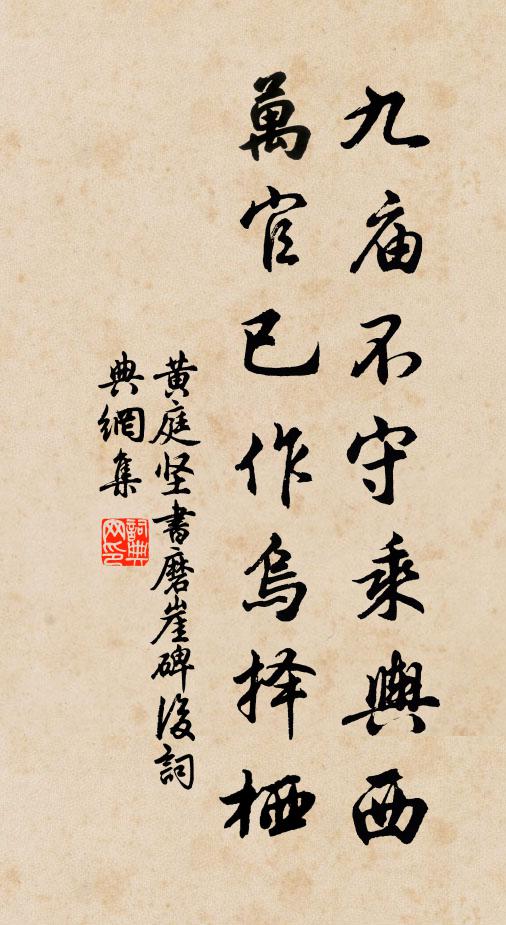 九庙不守乘輿西
萬官已作烏择栖
黄庭坚書磨崖碑後詞
典網集
詞典网印